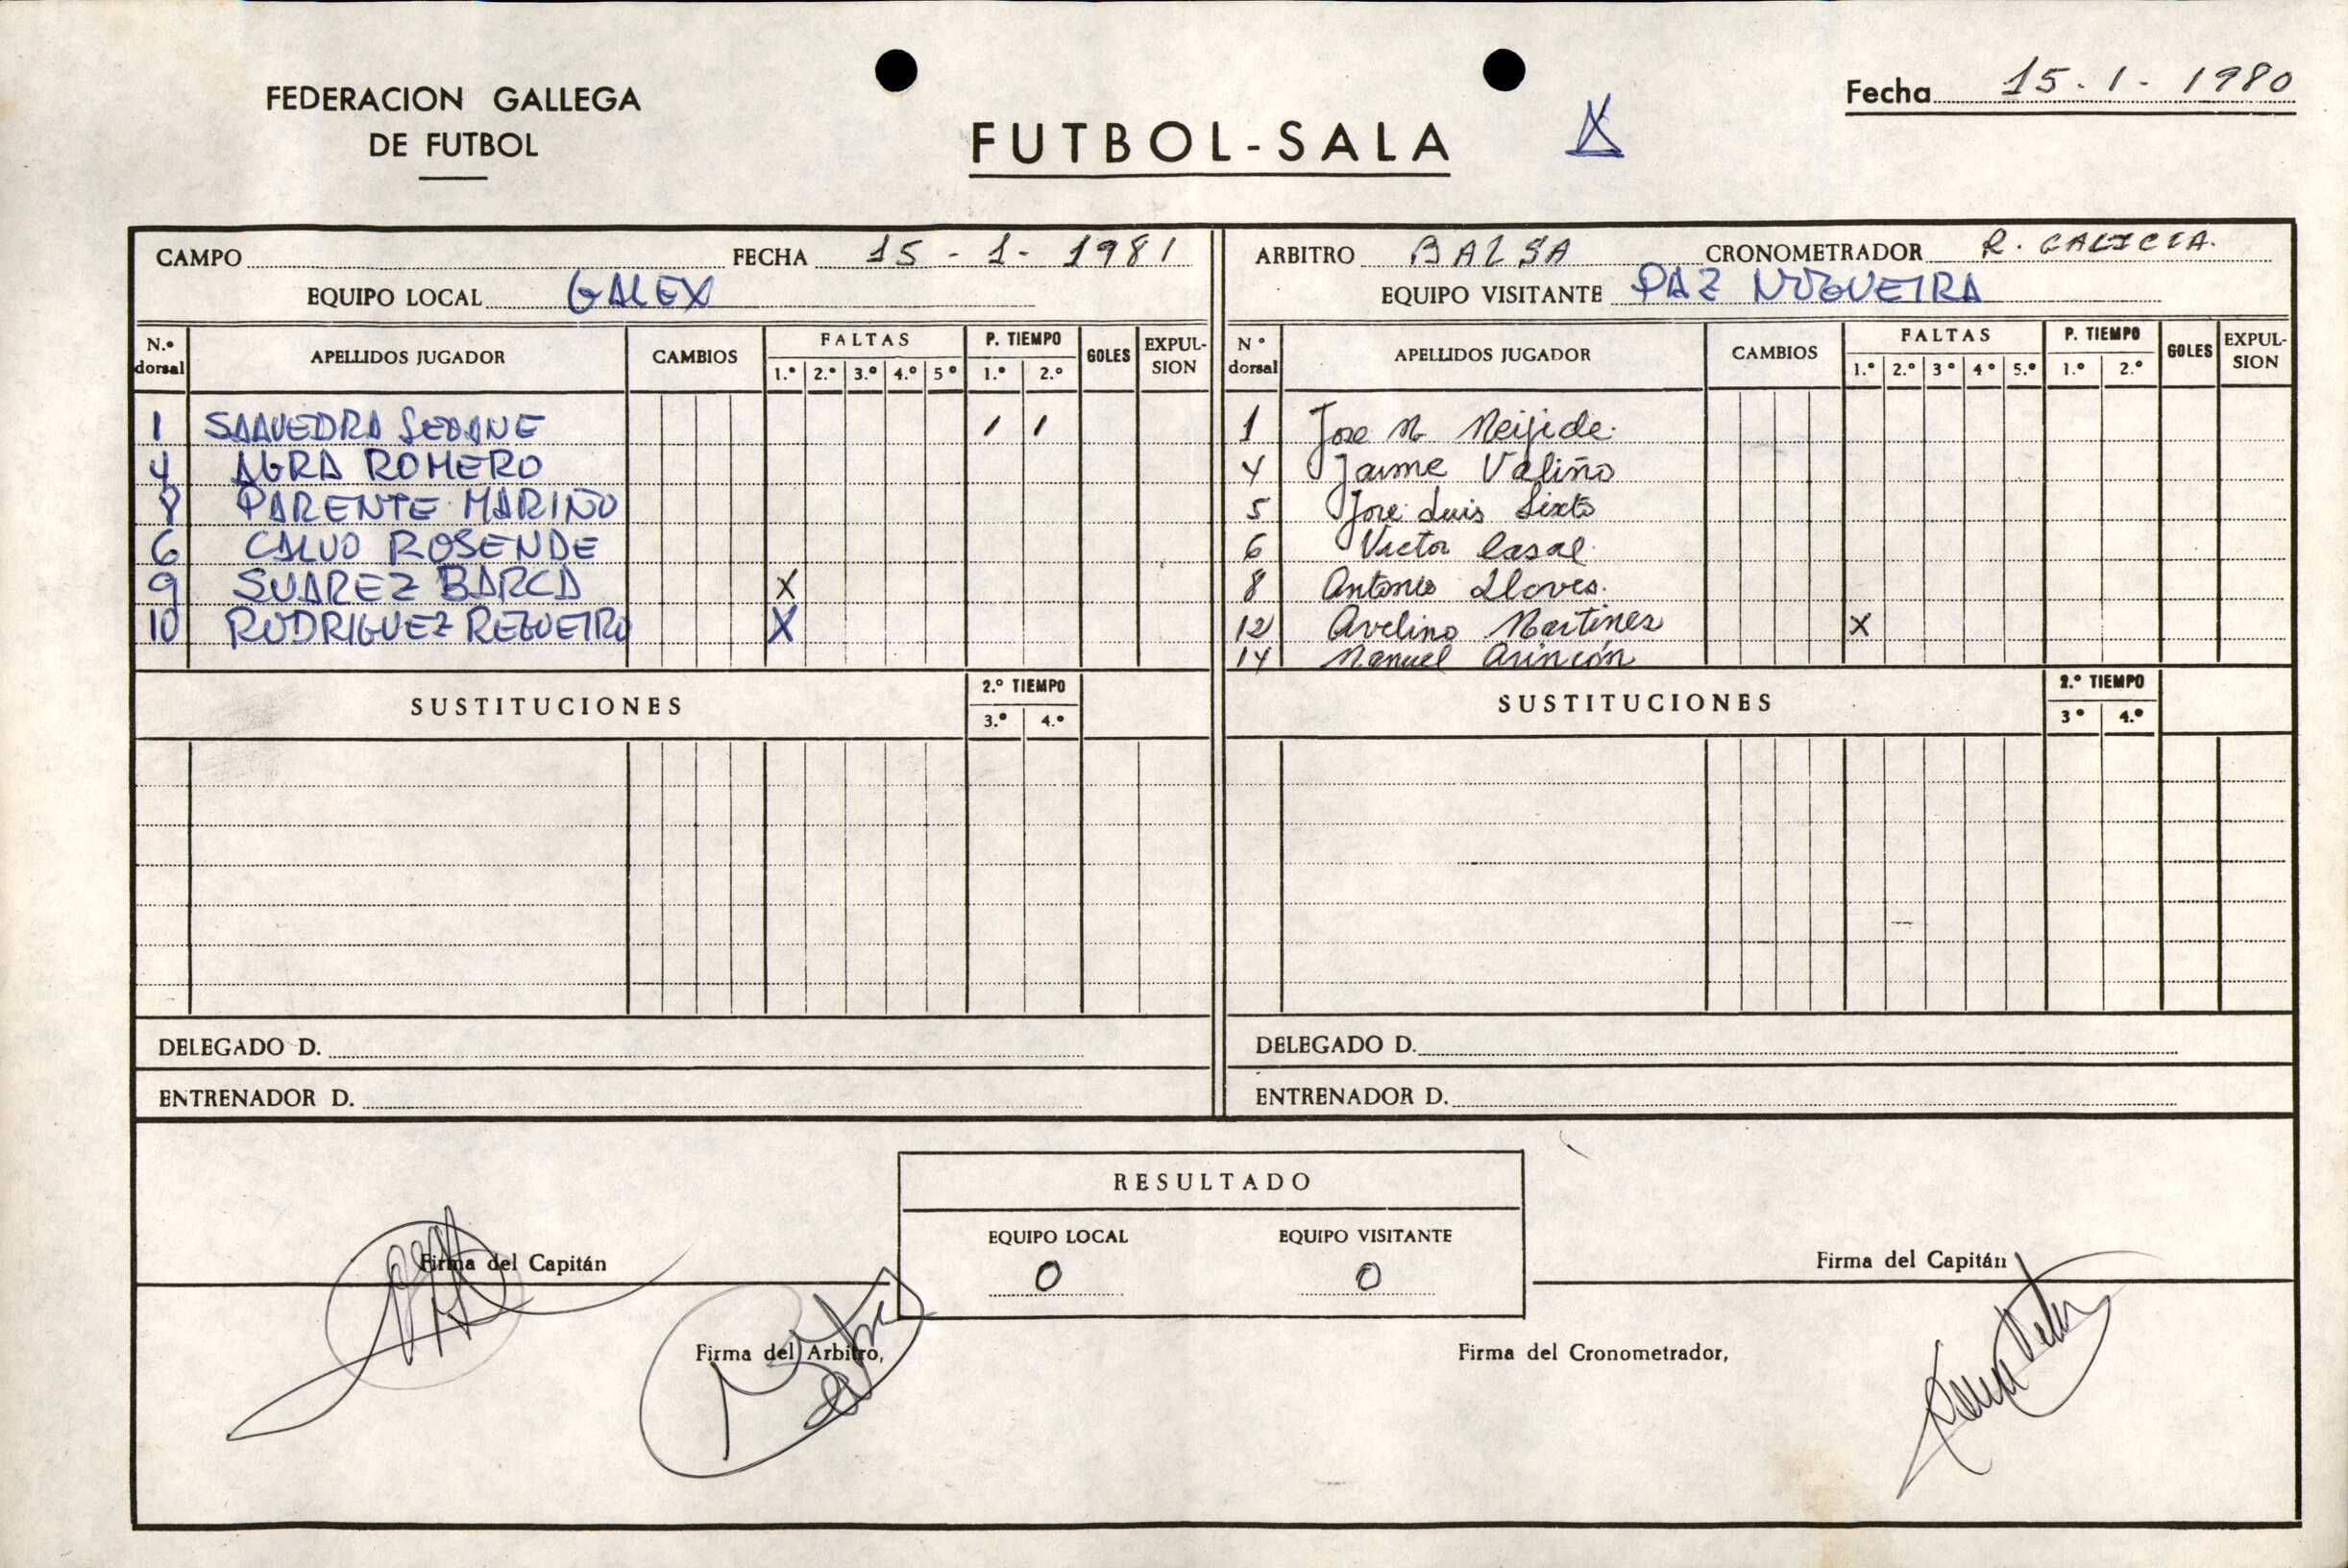 FEDERACION GALLEGA
DE FUTBOL
FUTBOL-SALA
Fecha 15-1-1980
CAMPO FECHA 15-1-1981
EQUIPO LOCAL GALEX
N.º dorsal APELLIDOS JUGADOR CAMBIOS FALTAS 1.º 2.º 3.º 4.º 5º P. TIEMPO 1.º 2.º GOLES EXPULSION
1 SAAVEDRA SEOANE / /
4 AGRA ROMERO
8 PARENTE MARIÑO
6 CALVO ROSENDE
9 SUAREZ BARCA X
10 RODRIGUEZ REGUEIRO X
SUSTITUCIONES 2.º TIEMPO 3.º 4.º
DELEGADO D.
ENTRENADOR D.
ARBITRO BALSA CRONOMETRADOR R. GALICIA.
EQUIPO VISITANTE PAZ NOGUEIRA
Nº dorsal APELLIDOS JUGADOR CAMBIOS FALTAS 1.º 2.º 3º 4º 5.º P. TIEMPO 1.º 2.º GOLES EXPULSION
1 Jose M. Neijide.
4 Jaime Valiño
5 Jose Luis Sixto
6 Victor Casal.
8 Antonio Lloves.
12 Avelino Martinez X
14 Manuel Arincón
SUSTITUCIONES 2.º TIEMPO 3º 4.º
DELEGADO D.
ENTRENADOR D.
RESULTADO
EQUIPO LOCAL EQUIPO VISITANTE
0 0
Firma del Capitán
Firma del Capitán
Firma del Arbitro,
Firma del Cronometrador,